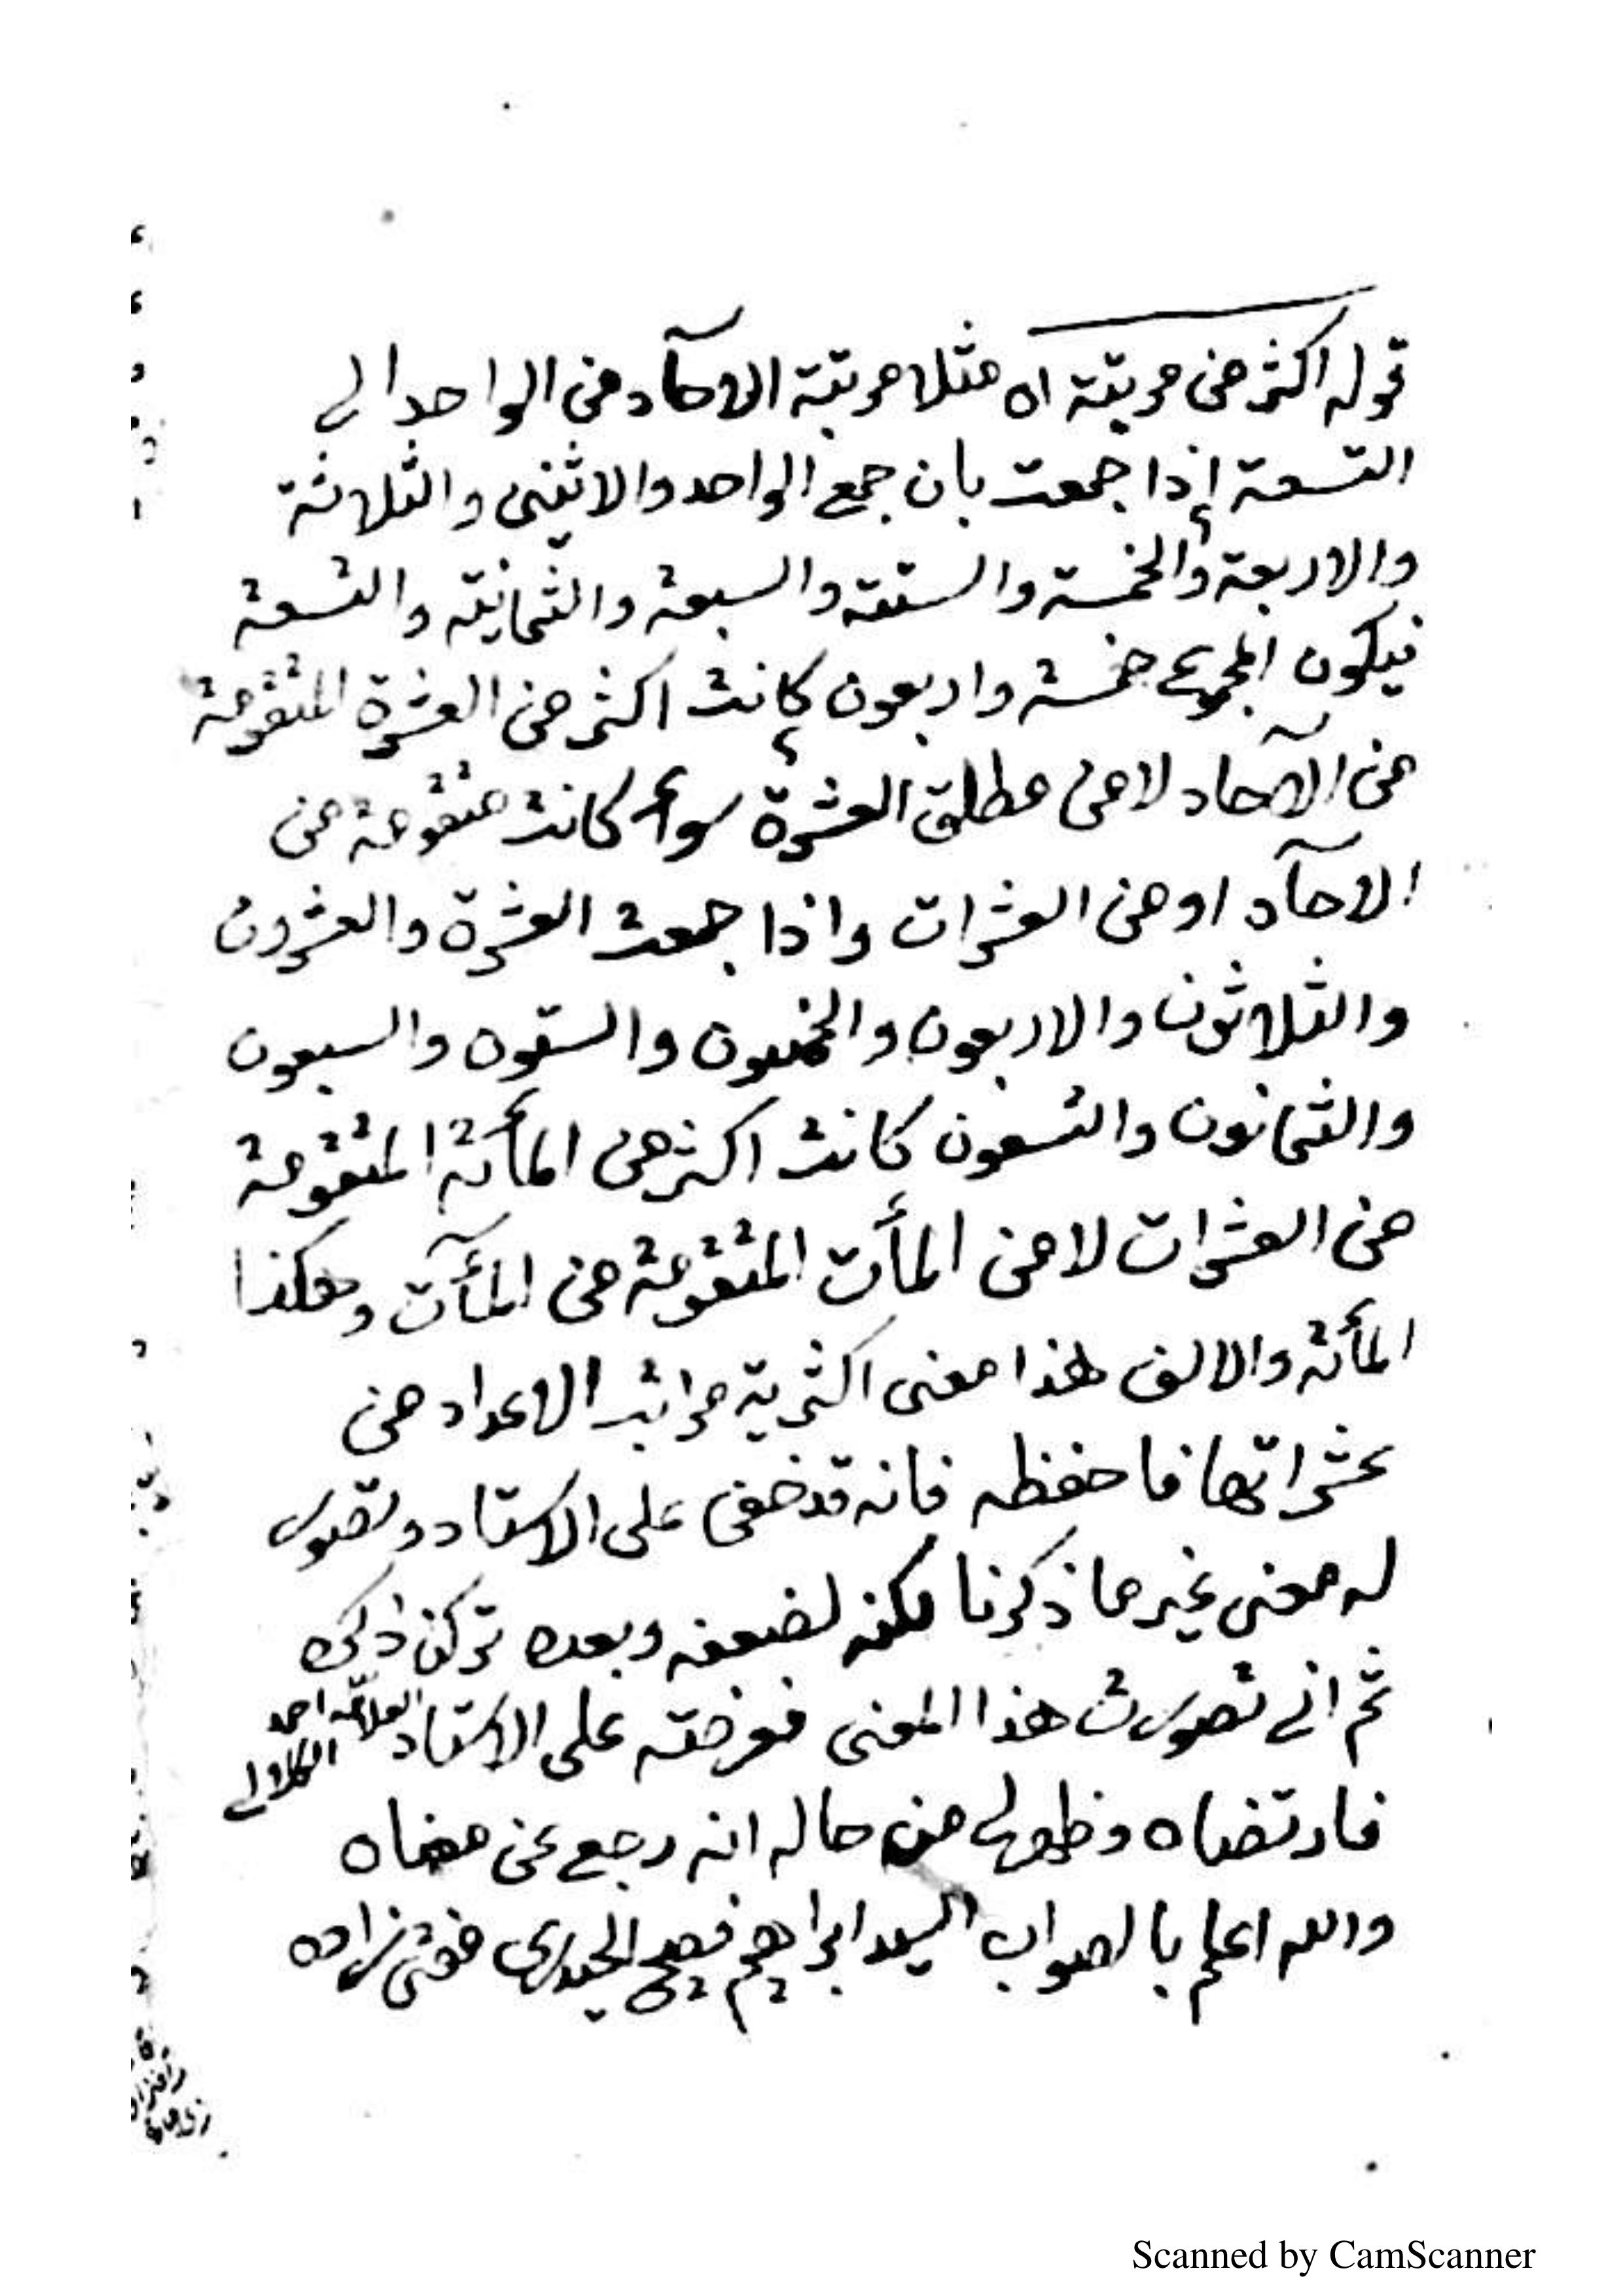 قوله اكثر من مرتبته اه مثلا مرتبة الآحاد من الواحد الى
التسعة إذا جمعت بان جمع الواحد والاثنين والثلاثة
والاربعة والخمسة والستة والسبعة والثمانية والتسعة
فيكون المجموع خمسة واربعون كانت اكثر من العشرة المتقومة
من الآحاد لا من مطلق العشرة سواء كانت متقومة من
الآحاد او من العشرات واذا جمعت العشرة والعشرون
والثلاثون والاربعون والخمسون والستون والسبعون
والثمانون والتسعون كانت اكثر من المأئة المتقومة
من العشرات لا من المأت المتقومة من المأت وهكذا
المأئة والالف هذا معنى اكثرية مراتب الاعداد من
عشراتها فاحفظه فانه قد خفى على الاستاد وتصور
له معنى غير ما ذكرنا لكنه لضعفه وبعده تركن ذكره
ثم انى تصورت هذا المعنى فعرضته على الاستاد العلامة احمد
الكلالى
فارتضاه وظهر لى من حاله انه رجع عن معناه
والله اعلم بالصواب السيد ابراهيم فصيح الحيدرى مفتى زاده
Scanned by CamScanner